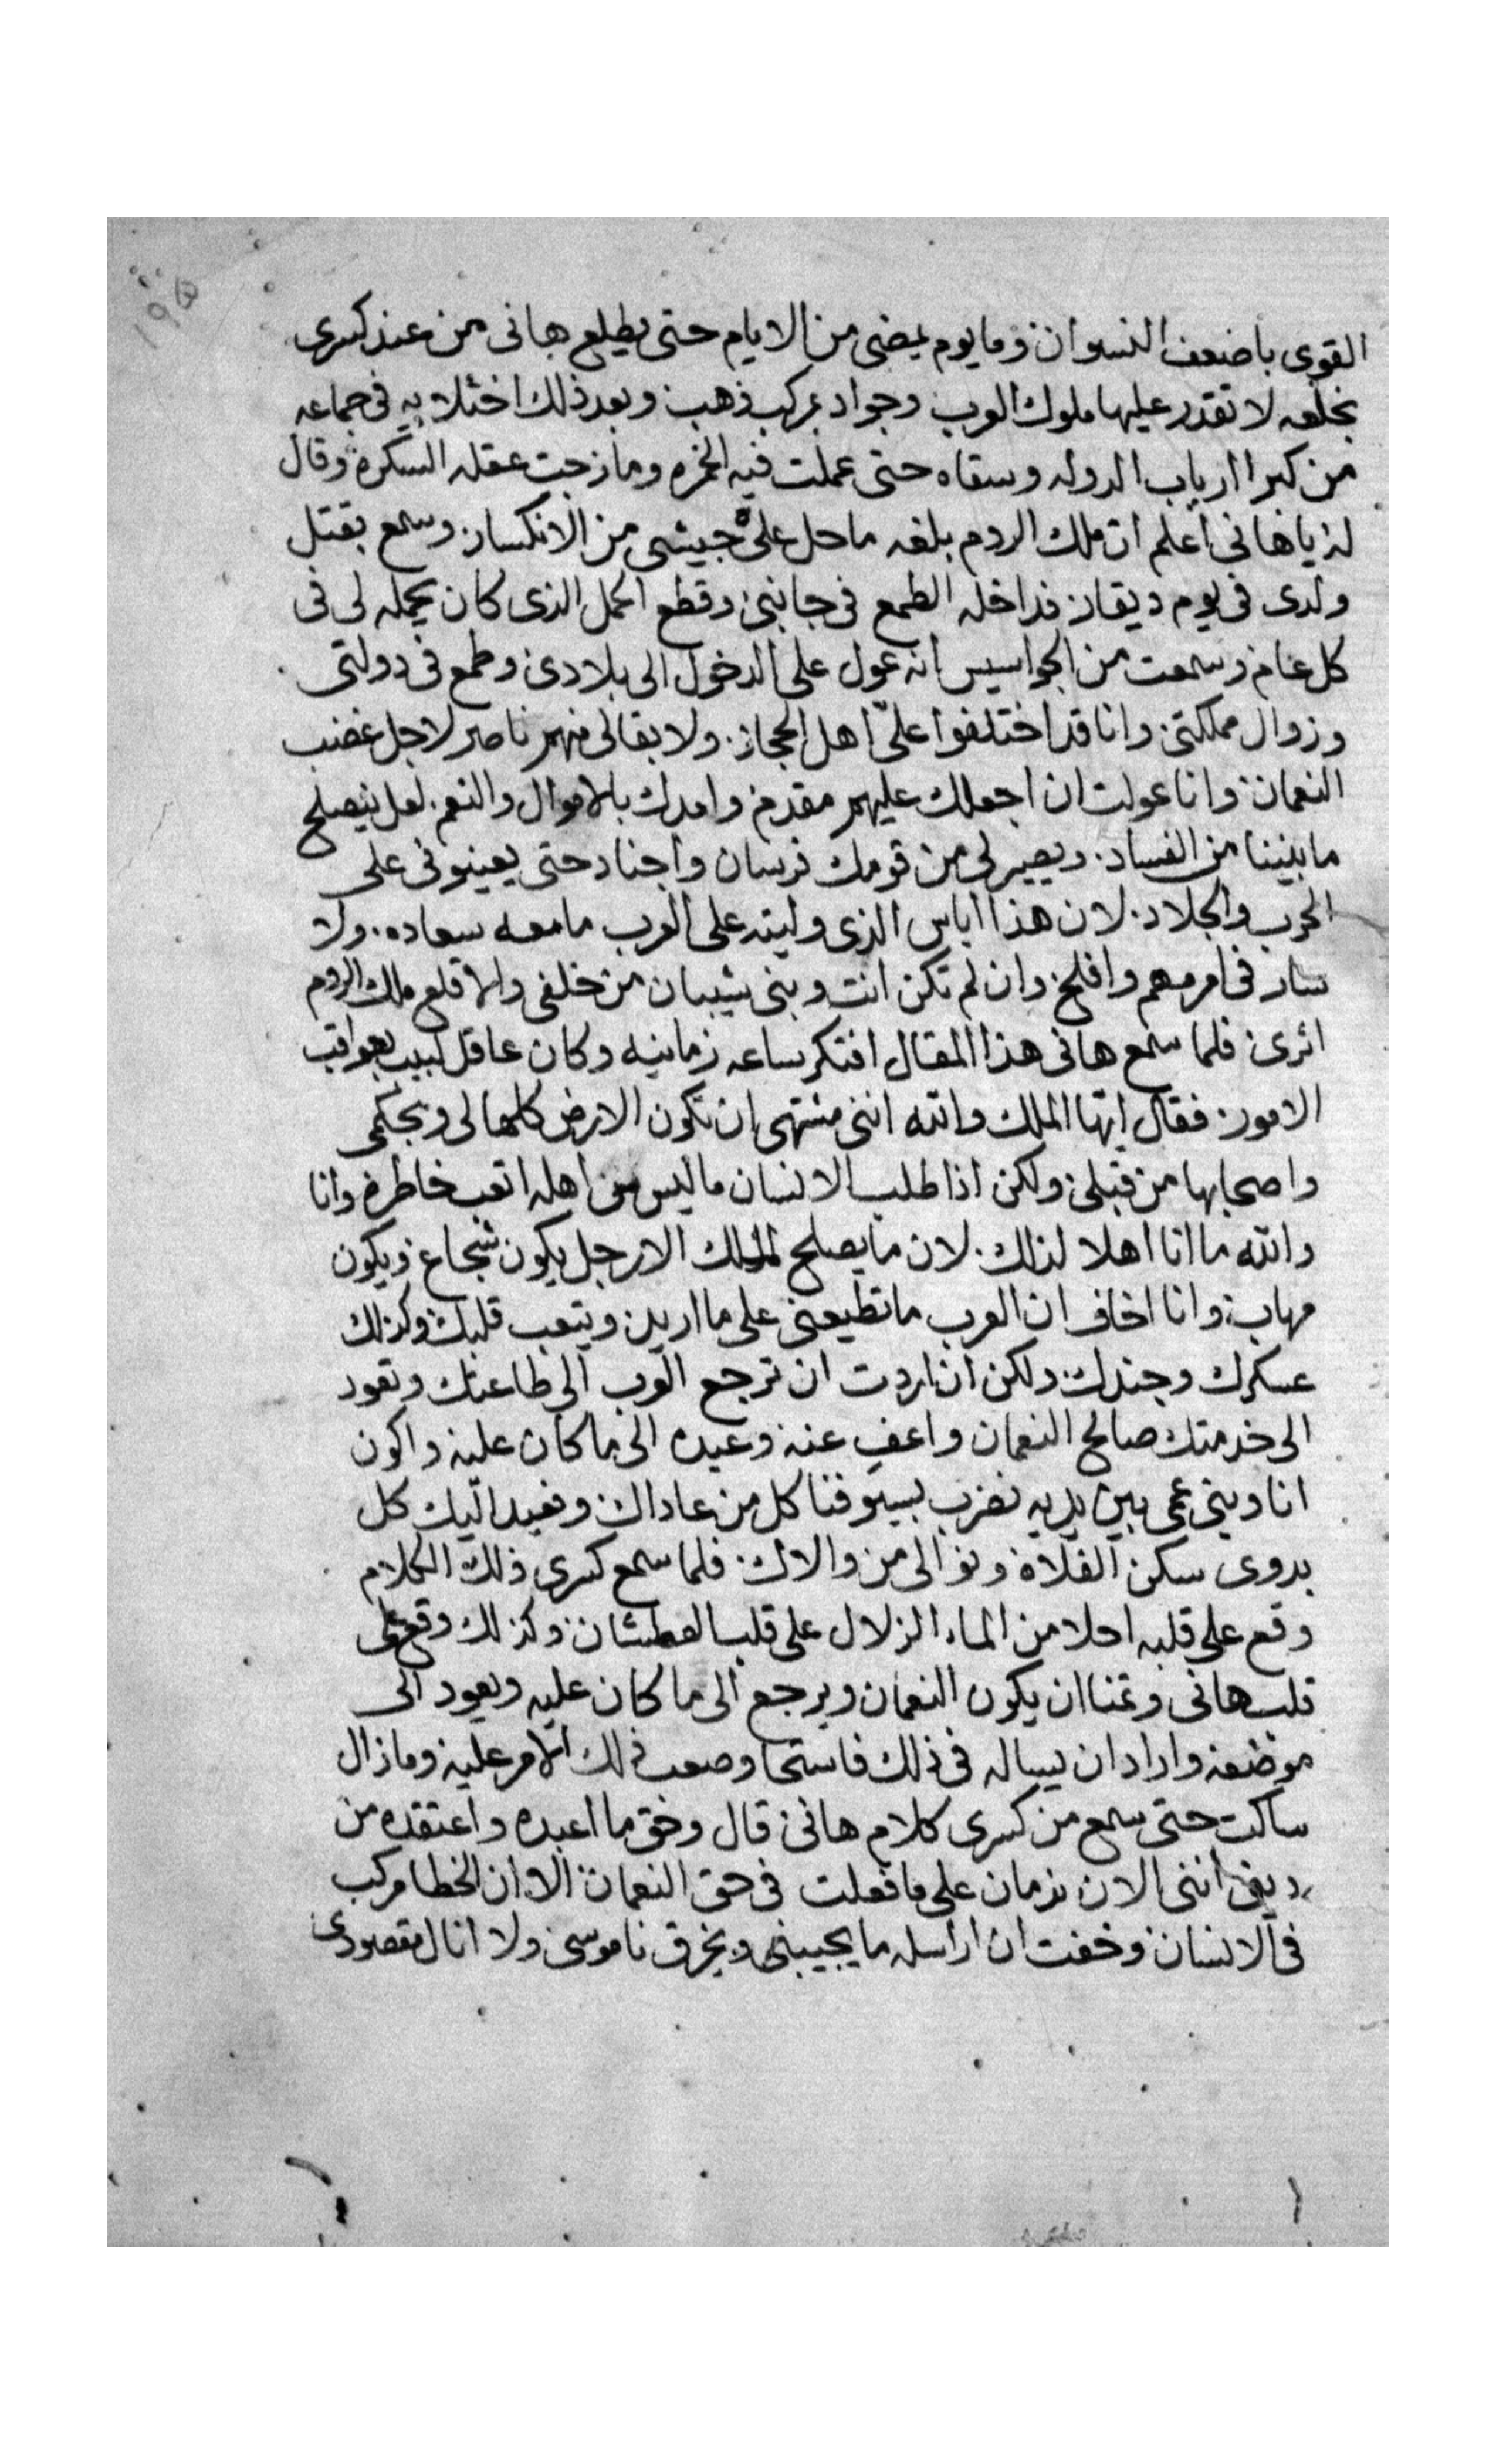 ١٩٥
القوى باضعف النسوان وما يوم يمضى من الايام حتى يطلع هانى من عند كسرى
بخلعه لا تقدر عليها ملوك العرب وجواد بمركب ذهب وبعد ذلك اختلا به فى جماعه
من كبرا ارباب الدوله وسقاه حتى عملت فيه الخمره ومازجت عقله السكره وقال
له يا هانى اعلم ان ملك الروم بلغه ما حل على جيشى من الانكسار وسمع بقتل
ولدى فى يوم ديقار فداخله الطمع فى جانبى وقطع الحمل الذى كان يحمله لى فى
كل عام وسمعت من الجواسيس انه عول على الدخول الى بلادى وطمع فى دولتى
وزوال مملكتى وانا قد اختلفوا علىّ اهل الحجاز ولا بقا لى منهم ناصر لاجل غضب
النعمان وانا عولت ان اجعلك عليهم مقدم وامدك بالاموال والنعم لعل ينصلح
ما بيننا من الفساد ويصير لى من قومك فرسان واجناد حتى يعينونى على
الحرب والجلاد لان هذا اياس الذى وليته على العرب ما معه سعاده ولا
سار فى امر مهم وافلح وان لم تكن انت وبنى شيبان من خلفى والا قلع ملك الروم
اثرى فلما سمع هانى هذا المقال افتكر ساعه زمانيه وكان عاقل لبيب بعواقب
الامور فقال ايها الملك والله اننى مشتهى ان تكون الارض كلها لى وبحكمى
واصحابها من قبلى ولكن اذا طلب الانسان ما ليس من اهله اتعب خاطره وانا
والله ما انا اهلا لذلك لان ما يصلح للملك الا رجل يكون شجاع ويكون
مهاب وانا اخاف ان العرب ما تطيعنى على ما اريد ويتعب قلبك وكذلك
عسكرك وجندك ولكن ان اردت ان ترجع العرب الى طاعتك وتعود
الى خدمتك صالح النعمان واعف عنه وعيده الى ما كان عليه واكون
انا وبنى عمى بين يديه نضرب بسيوفنا كل من عاداك ونعيد اليك كل
بدوى سكن الفلاة ونوالى من والاك فلما سمع كسرى ذلك الكلام
وقع على قلبه احلا من الماء الزلال على قلب العطشان وكذلك وقع على
قلب هانى وتمنا ان يكون النعمان ويرجع الى ما كان عليه ويعود الى
موضعه واراد ان يساله فى ذلك فاستحا وصعب ذلك الامر عليه وما زال
ساكت حتى سمع من كسرى كلام هانى قال وحق ما اعبده واعتقده من
دينى اننى الان ندمان على ما فعلت فى حق النعمان الا ان الخطا مركب
فى الانسان وخفت ان اراسله ما يجيبنى ويخرق ناموسى ولا انال مقصودى